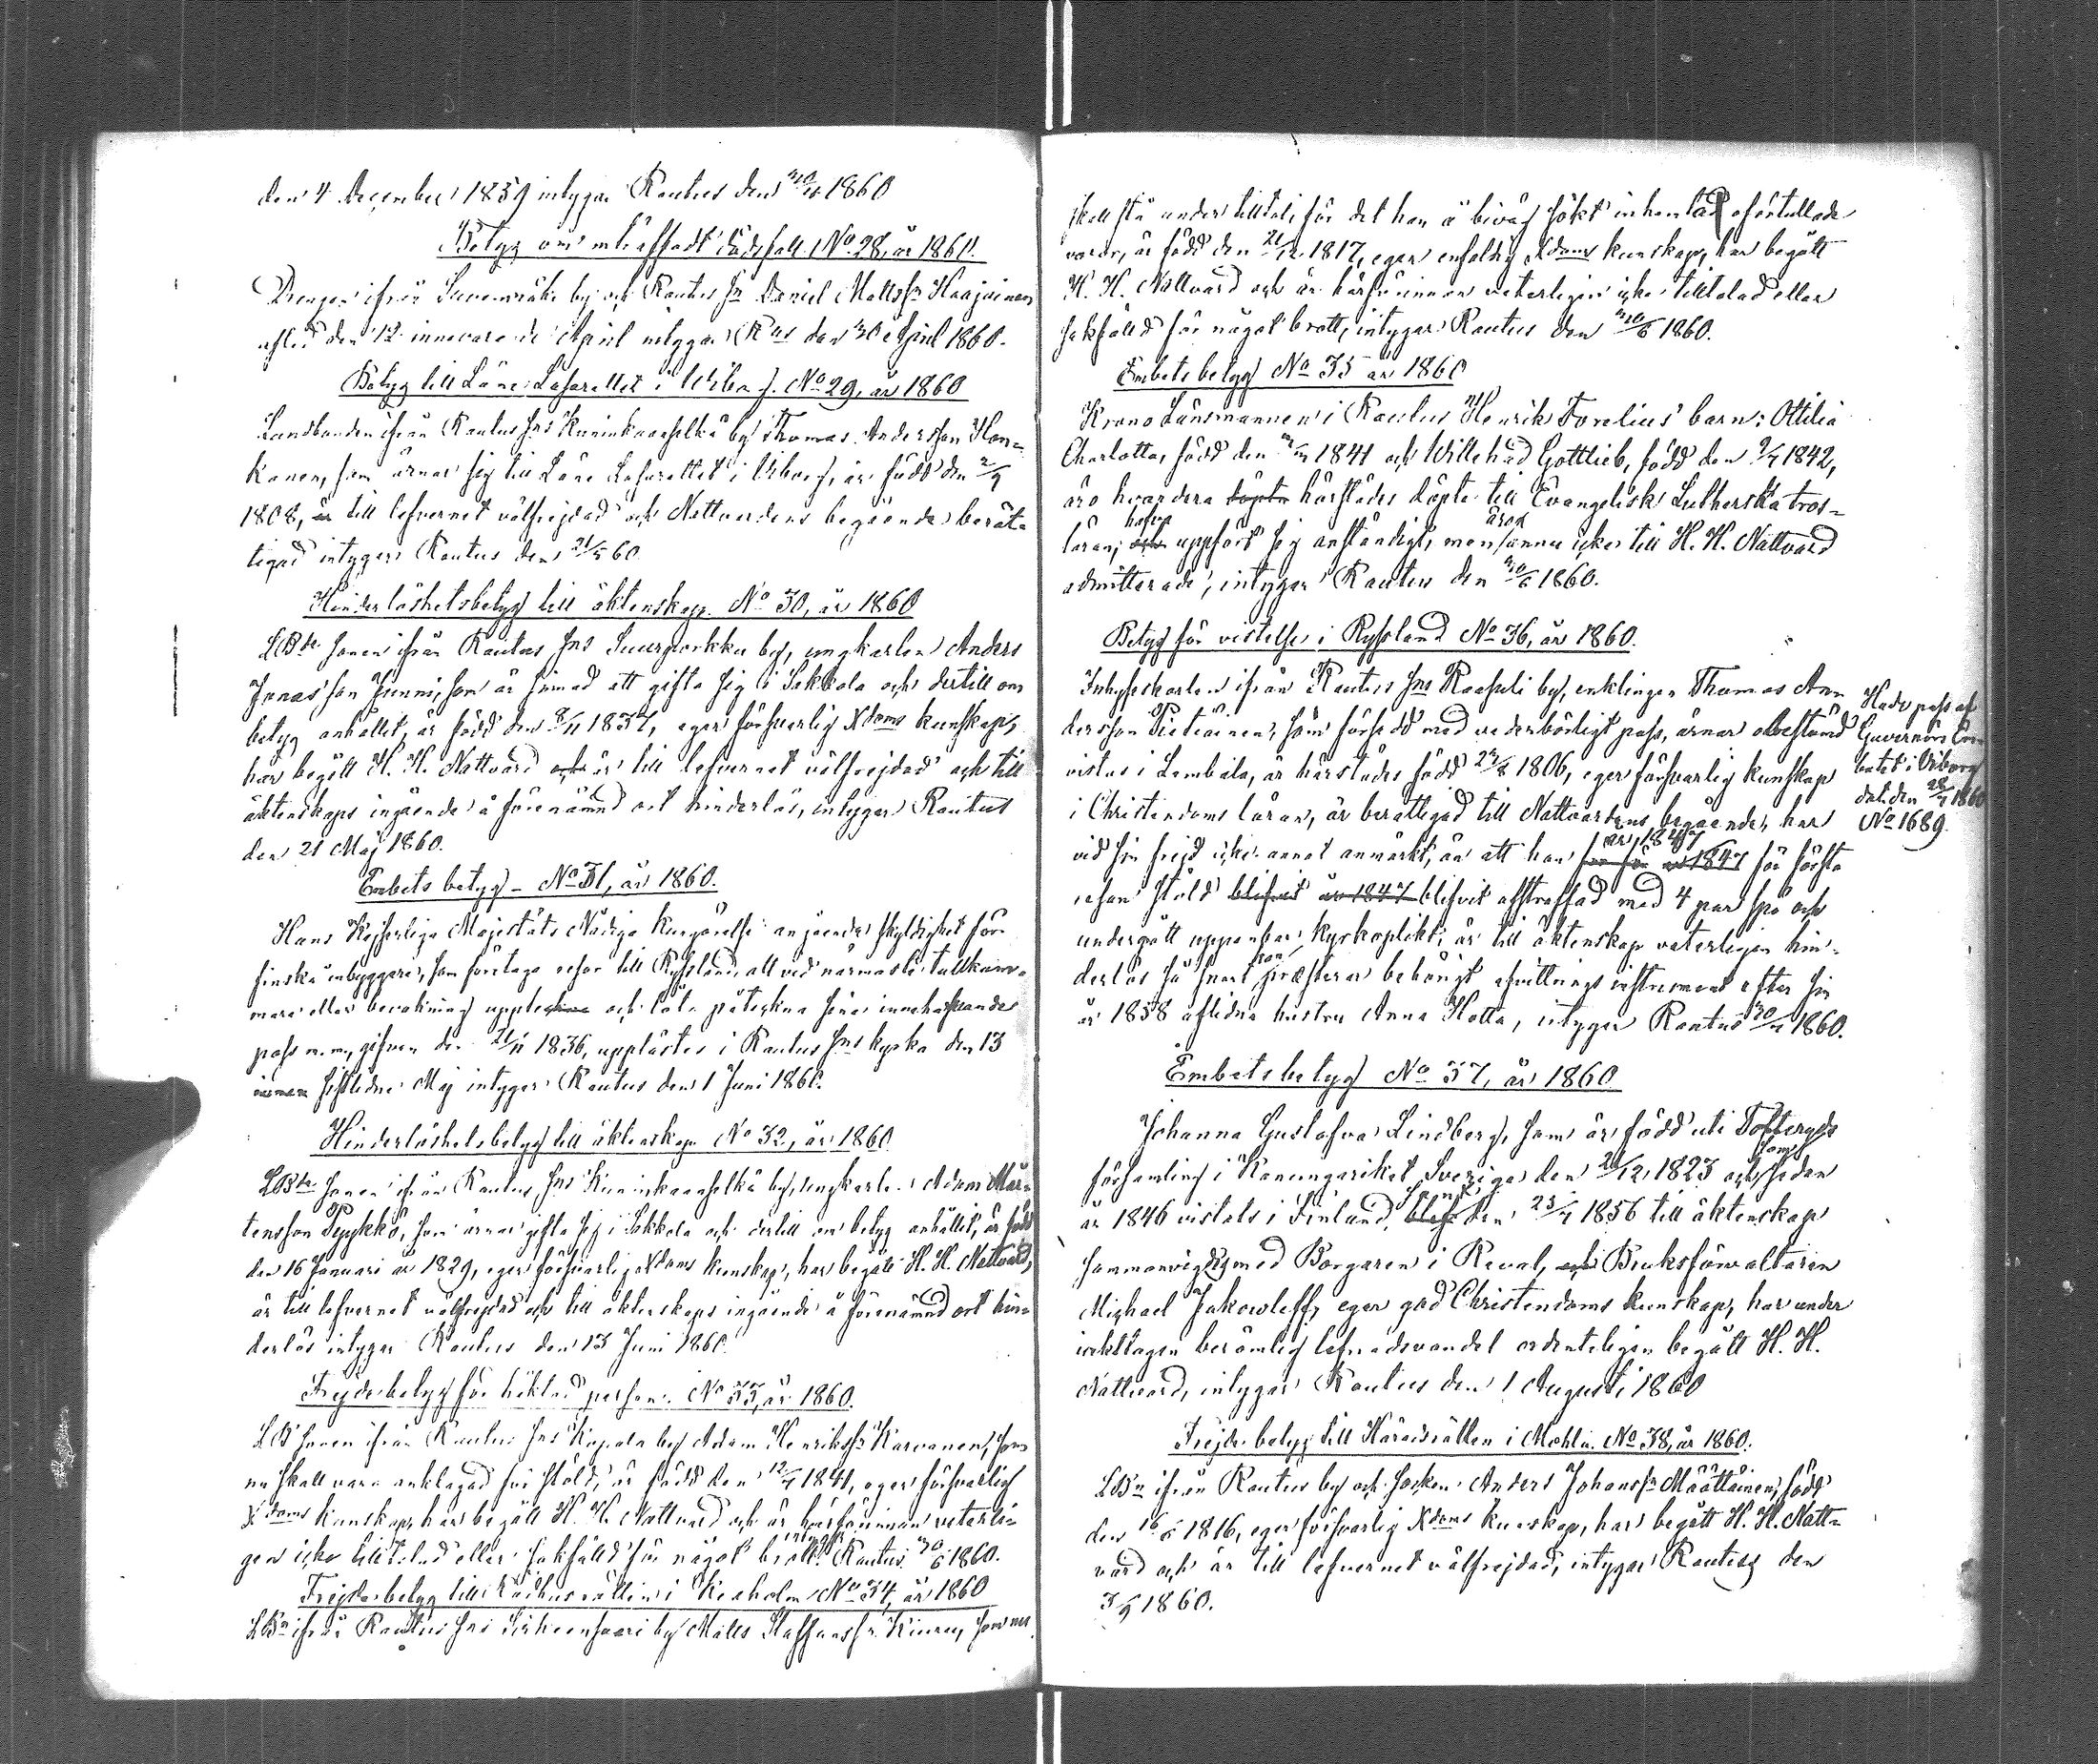 den 4 December 1859 intygar Rautus den 30/4 1860
Betyg om inträffadt dödsfall. No 28, år 1860.
Drengen ifrån by och Rautus Sn Daniel Mattsson Haajainen
afled den 12 innevarande April intygar Rus den 30 April 1860.
Betyg till Läne Lasarettet i Wiborg. No 29, år 1860
Landbonden ifrån Rautus Sns Kuninkaanselkä by Thomas Andersson Hon-
kanen, som ärnar sig till Läne Lasarettet i Wiborg, är född den 2/9
1808, är till lefvernet välfrejdad och Nattvardens begående berät-
tigad intygar Rautus den 21/5 60
Hinderlöshetsbetyg till äktenskap. No 30, år 1860
LBde sonen ifrån Rautus Sns Suurporkku by, ungkarlen Anders
Jonasson som är sinnad att gifta sig i Sakkola och dertill om
betyg anhållit, är född den 8/11 1837, eger försvarlig Xdoms kunskap,
har begått H. H. Nattvard och är till lefvernet välfrejdad och till
äktenskaps ingående å förenämnd ort hinderlös, intygar Rautus
den 21 Maj 1860.
Embets betyg - No 31, år 1860.
Hans Kejserliga Majestäts Nådiga Kungörelse angående skyldighet för
finska inbyggare, som företaga resor till Ryssland, att vid närmaste tullkam-
mare eller bevakning uppte och låta påteckna sina innehafvande
pass m. m., gifven den 21/11 1836, upplästes i Rautus Sns kyrka den 13
sistledne Maj intygar Rautus den 1 Juni 1860.
Hinderlöshetsbetyg till äktenskap No 32, år 1860
LBde sonen ifrån Rautus Sns Kuninkaanselkä by, ungkarlen Adam Mår-
tensson Pyykkö, som ärnar gifta sig i Sakkola och dertill om betyg anhållit, är född
den 16 Januari år 1829, eger försvarlig Xdoms kunskap, har begått H. H. Nattvard,
är till lefvernet välfrejdad och till äktenskaps ingående å förenämnd ort hin-
derlös intygar Rautus den 13 Juni 1860.
Frejdebetyg för häktad person. No 33, år 1860.
LB sonen ifrån Rautus Sns by Adam Henriksson Karvanen, som
nu skall vara anklagad för stöld, är född den 12/7 1841, eger försvarlig
Xdoms kunskap, har begått H. H. Nattvard och är härförinnan veterli-
gen icke tilltalad eller sakfälld för något brott. intygar Rautus 30/6 1860.
Frejdebetyg till Rådhusrätten i Kexholm No 34, år 1860
LBn ifrån Rautus Sns by Matts Staffansson Kiuru, som nu
skall stå under tilltal, för det han å biväg sökt inhemta oförtullade
varor, är född den 21/12 1817, eger enfaldig Xdoms kunskap, har begått
H. H. Nattvard och är härförinnan veterligen icke tilltalad eller
sakfälld för något brott, intygar Rautus den 30/6 1860.
Embetsbetyg No 35 år 1860
Krono Länsmannen i Rautus Henrik Forelius' barn: Ottilia
Charlotta, född den 1841 och Willehad Gottlieb, född den 9/7 1842,
äro hvardera döpta härstädes döpta till Evangelisk Lutherska tros-
läran, och hafva uppfört sig anständigt, men äro ännu icke till H. H. Nattvard
admitterade, intygar Rautus den 30/6 1860.
Betyg för vistelse i Ryssland No 36, år 1860.
Inhyseskarlen ifrån Rautus Sns Raasuli by, enklingen Thomas An-
dersson Pietiäinen, som försedd med vederbörligt pass, ärnar obestämd
vistas i Lembåla, är härstädes född 1806, eger försvarlig kunskap
i Christendoms läran, är berättigad till Nattvardens begående, har
vid sin frejd icke annat anmärkt, än att han år 1847 för första
resan stöld blifvit år 1847 blifvit afstraffad med 4 par spö och
undergått uppenbar kyrkoplikt; är till äktenskap veterligen hin-
derlös så snart han præsterar behörigt afvittrings instrument efter sin
år 1858 aflidna hustru Anna Hotta, intygar Rautus 1860.
Hade pass af
Guvernörs Em-
betet i Wiborg
dat. den 28/7 1860
No 1689.
Embetsbetyg No 37, år 1860
Johanna Gustafva Lindberg, som är född uti Tofteryds
församling i Konungariket Sverige den 1823 och som sedan
år 1846 vistats i Finland, den 25/7 1856 till äktenskap
sammanvigd med Borgaren i Reval, och Bruksförvaltaren
Michael Jakowleff, eger god Christendoms kunskap, har under
iakttagen berömlig lefnadsvandel ordenteligen begått H. H.
Nattvard, intygar Rautus den 1 Augusti 1860
Frejdebetyg till Häradsrätten i Mohla. No 38, år 1860.
LBn ifrån Rautus by och socken Anders Johansson Määttäinen, född
den 16/5 1816, eger försvarlig Xdoms kunskap, har begått H. H. Natt-
vard och är till lefvernet välfrejdad, intygar Rautus den
3/9 1860.